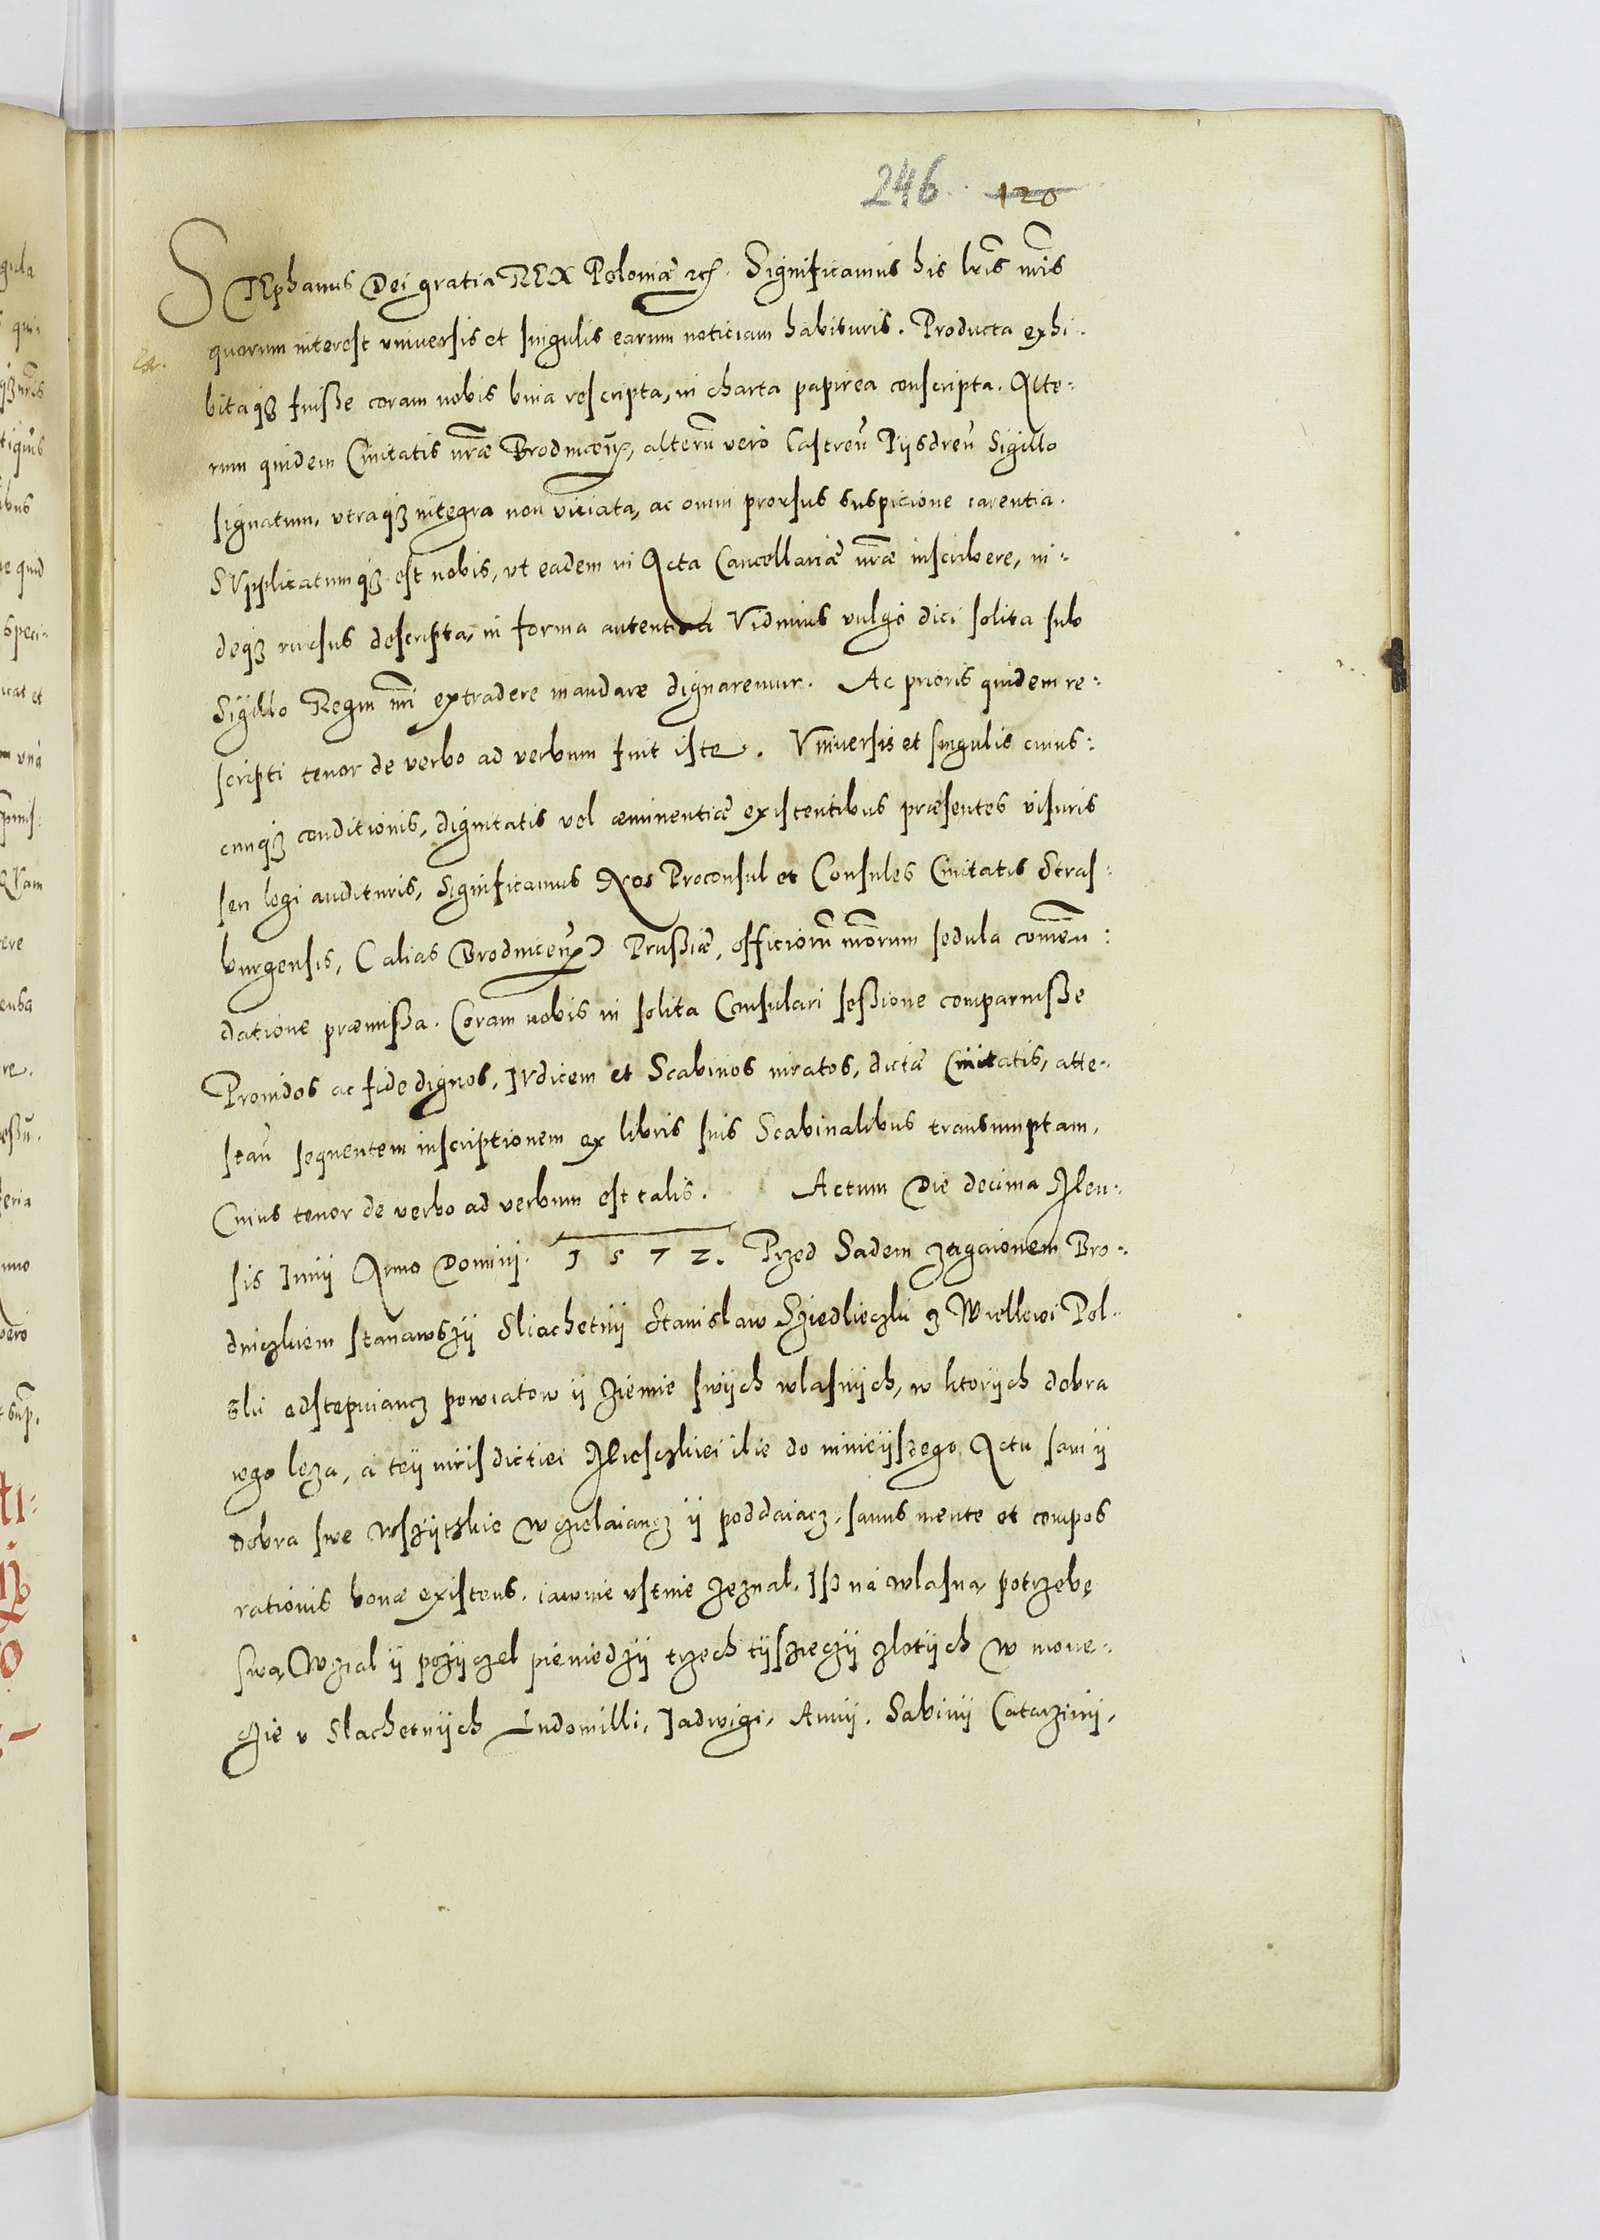 246 120
STEphanus Dei gratia REX Poloniæ etc. Significamus his lr̃is nr̃is
quorum interest vniuersis et singulis earum noticiam habituris. Producta exhi-
bitaqȝ fuiſſe coram nobis bina rescripta, in charta papirea conscripta. Alte-
rum quidem Ciuitatis nr̃æ Brodnicen̄, alterũ vero Castren̄ Pijsdren̄ Sigillo
signatum, vtraqȝ integra non viciata, ac omni prorsus suspicione carentia.
SVpplicatumqȝ est nobis, vt eadem in Acta Cancellariæ nr̃æ inscribere, in-
deqȝ rursus descripta, in forma autentica Vidimus vulgo dici solita sub
Sigillo Regni nr̃i extradere mandare dignaremur. Ac prioris quidem re-
scripti tenor de verbo ad verbum fuit iste. Vniuersis et singulis cuius-
cunqȝ conditionis, dignitatis vel æminentiæ existentibus præsentes visuris
seu legi audituris, significamus Nos Proconsul et Consules Ciuitatis Stras-
burgensis, (alias Brodnicen̄) Pruſſiæ, officiorũ nr̃orum sedula com̃en-
datione præmiſſa. Coram nobis in solita Consulari seſſione comparuiſſe
Prouidos ac fide dignos, IVdicem et Scabinos iuratos, dictæ Ciuitatis, atte-
stan̄ sequentem inscriptionem ex libris suis Scabinalibus transumptam,
Cuius tenor de verbo ad verbum est talis. Actum Die decima Men-
sis Iunij Anno Domini. 1572. Przed Sadem zagaionem Bro-
dniczkiem stanawszÿ Sliachetnÿ Stanislaw Sziedlieczki z Wielkowi Pol-
ski odstepuiancz powiatow ÿ ziemie swÿch wlasnÿch, w ktorÿch dobra
iego leza, a teÿ iurisdictiei Mieiſczkiei ilie do minieÿszego Actu sam ÿ
dobra swe wszÿtzkie wczielaiancz ÿ poddaiacz, sanus mente et compos
rationis bonæ existens, iawnie vstnie zeznal. Isz na wlasna potrzebę
swą wzial ÿ pozÿczel pieniedzÿ trzech tÿsziecz̈ÿ zlotÿch w mone-
czie v Slachetnÿch Ludomilli, Iadwigi, Annÿ, Sabinÿ Catarzinÿ,